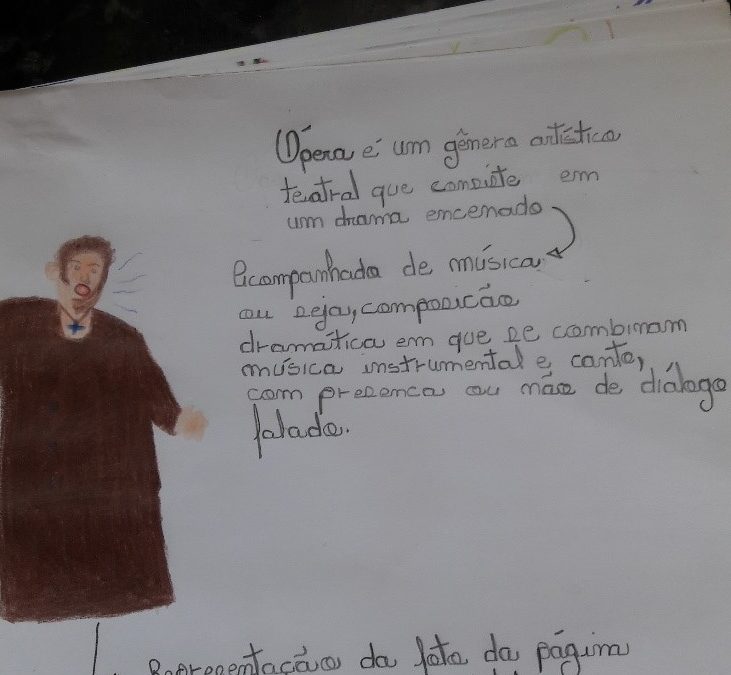 Ópera é um gênero artístico
teatral que consiste em
um drama encenado
acompanhada de música
ou seja, composicão
dramática em que se combinam
música instrumental e canto,
com presenca ou não de diálogo
falado.
Representação da foto da página